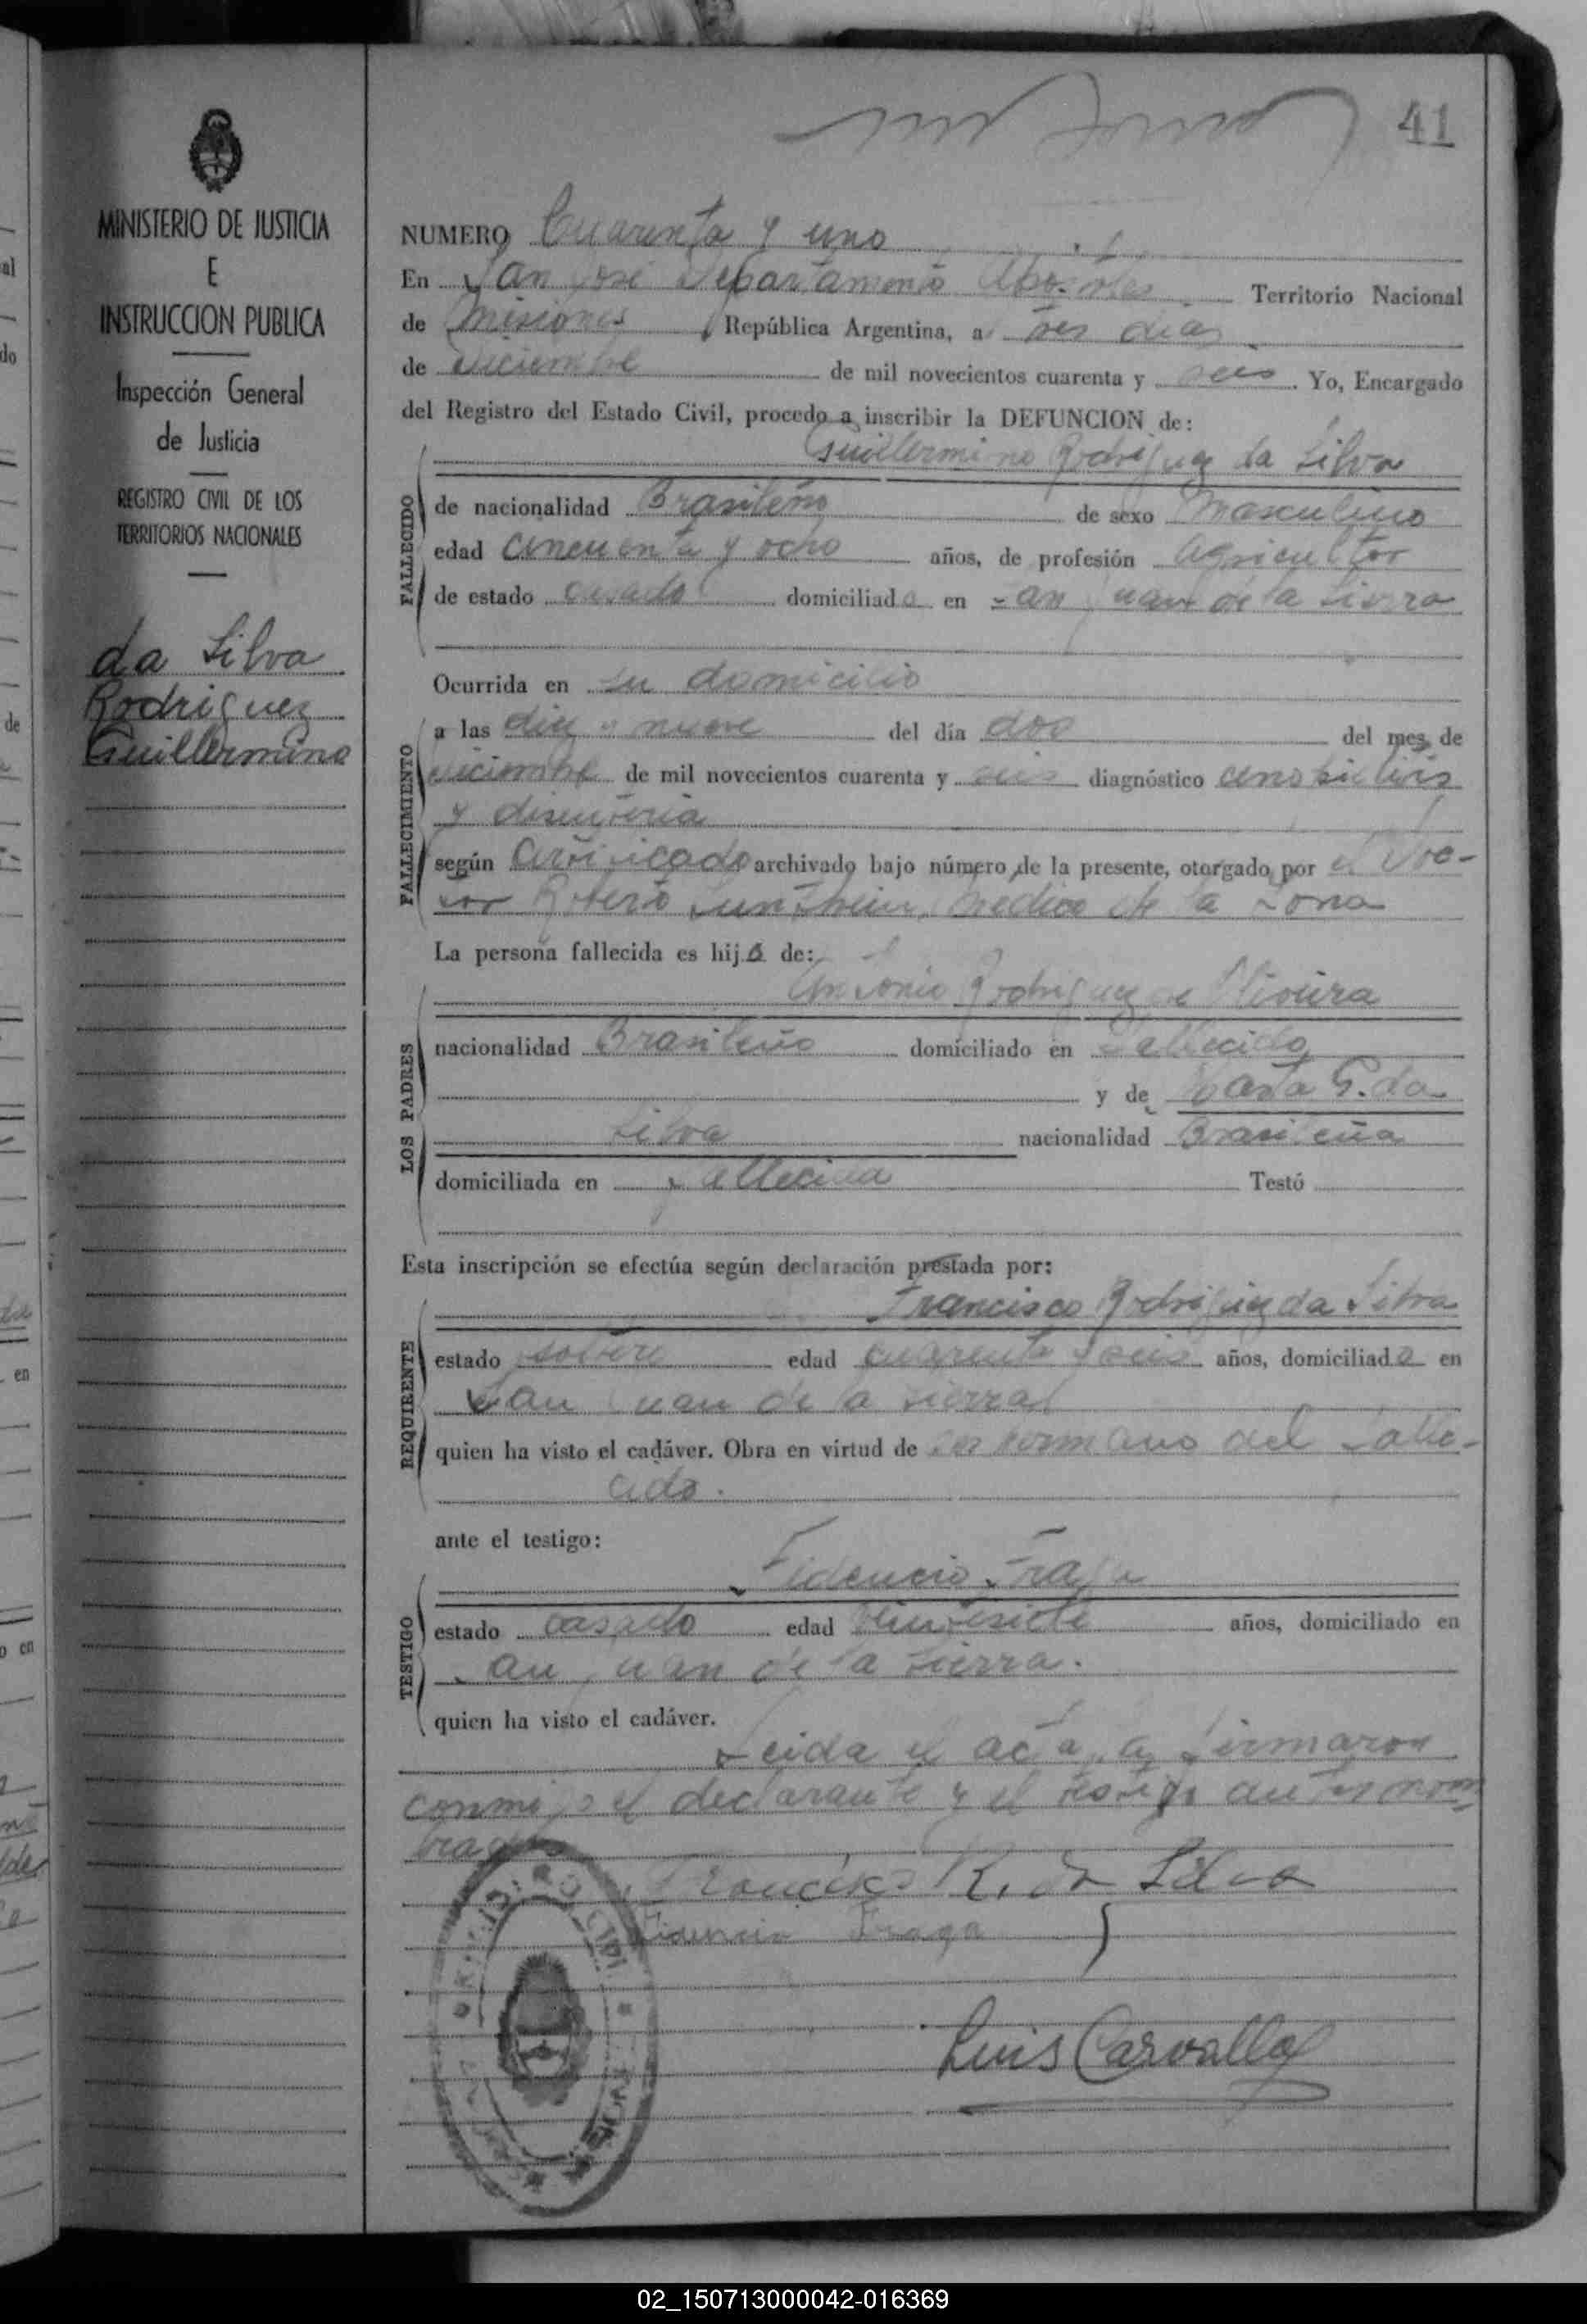 41
MINISTERIO DE JUSTICIA
E
INSTRUCCION PUBLICA
Inspección General
de Justicia
REGISTRO CIVIL DE LOS
TERRITORIOS NACIONALES
da Silva
Rodriguez
Guillermino
NUMERO Cuarenta y uno
En San José Departamento Apostoles Territorio Nacional
de Misiones República Argentina, a tres dias
de diciembre de mil novecientos cuarenta y seis. Yo, Encargado
del Registro del Estado Civil, procedo a inscribir la DEFUNCION de:
Guillermino Rodriguez da Silva
FALLECIDO
de nacionalidad Brasileño de sexo Masculino
edad cincuenta y ocho años, de profesión agricultor
de estado casado domiciliado en San Juan de la Sierra
Ocurrida en su domicilio
FALLECIMIENTO
a las diez y nueve del día dos del mes de
diciembre de mil novecientos cuarenta y seis diagnóstico
y disenteria
según certificado archivado bajo número de la presente, otorgado por el Doc-
tor Roberto medico de la zona
La persona fallecida es hijo de:
LOS PADRES
Antonio Rodriguez de Oliveira
nacionalidad Brasileño domiciliado en Fallecido
y de G. da
Silva nacionalidad Brasileña
domiciliada en Fallecida Testó
Esta inscripción se efectúa según declaración prestada por:
REQUIRENTE
Francisco Rodriguez da Silva
estado soltero edad cuarenta y seis años, domiciliado en
San Juan de la Sierra
quien ha visto el cadáver. Obra en virtud de ser hermano del falle-
cido.
ante el testigo:
TESTIGO
Fidencio Fraga
estado casado edad veintisiete años, domiciliado en
San Juan de la Sierra.
quien ha visto el cadáver.
Leida el acta, la firmaron
conmigo el declarante y el testigo antes nom
brados
Francisco R. da Silva
Fidencio Fraga
Luis Carvallo
02_150713000042-016369